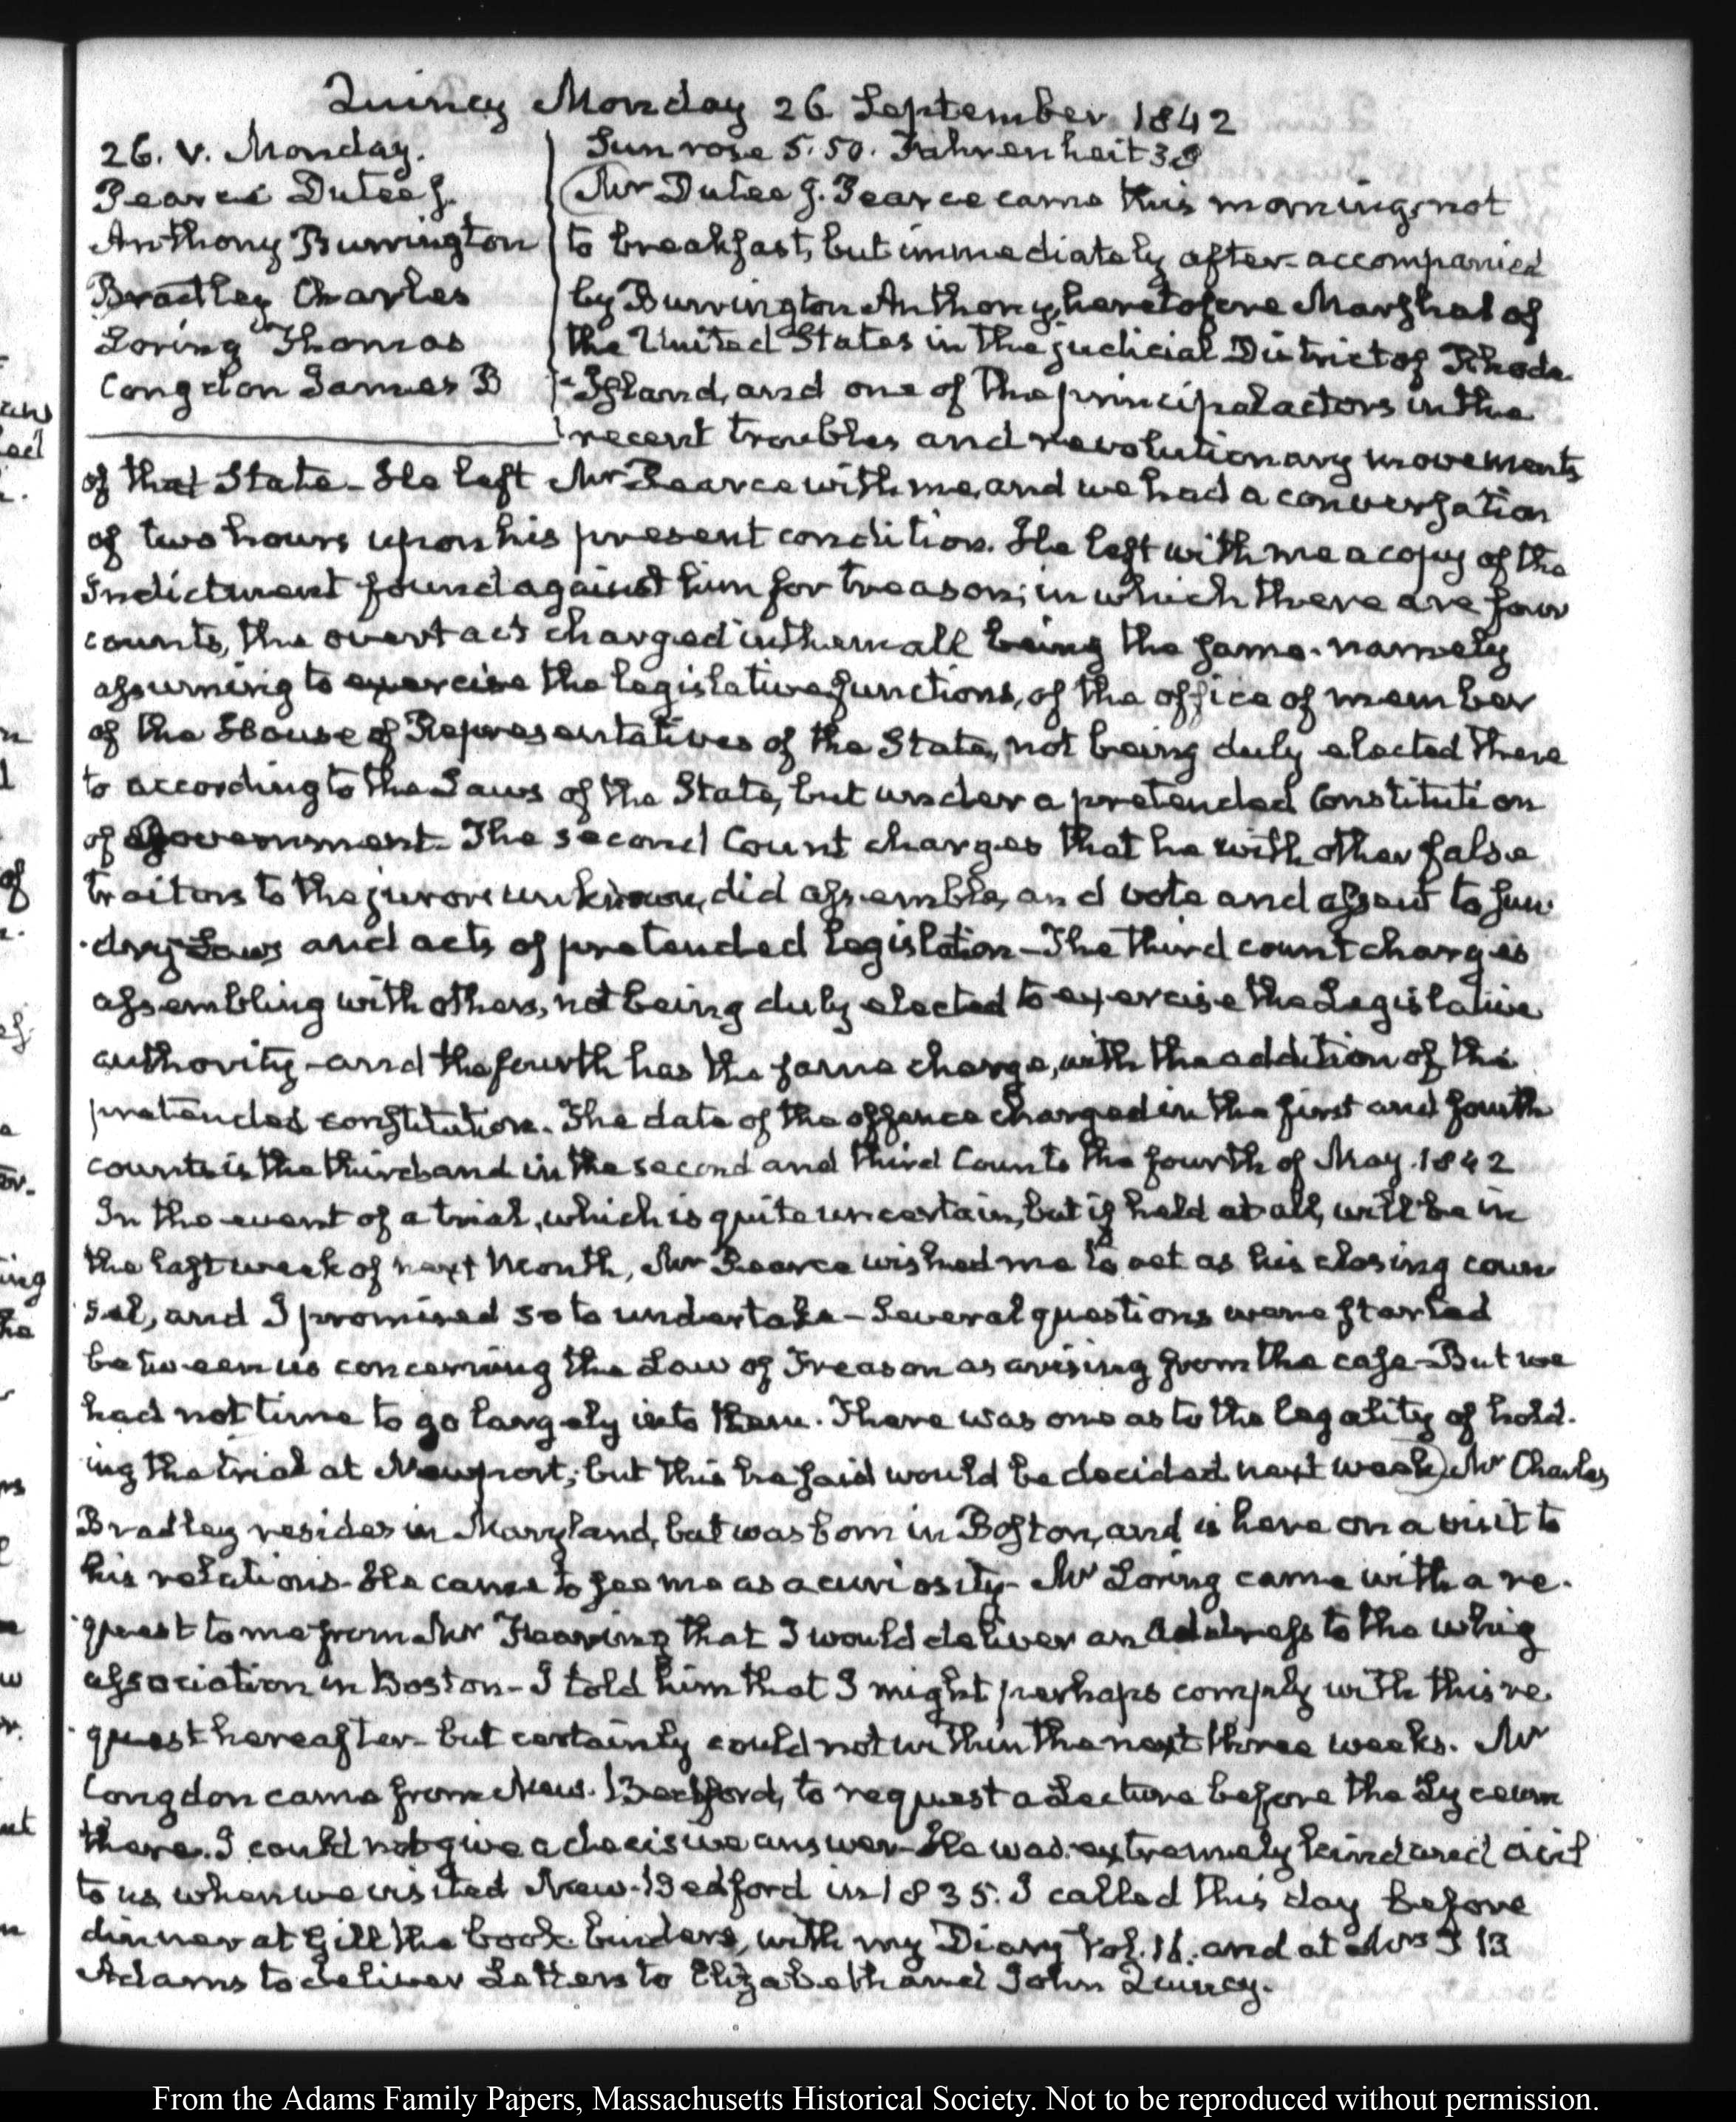 Quincy Monday 26 September 1842
26. V. Monday.
Pearce Dutee J.
Anthony Burrington
Bradley Charles
Loring Thomas
Congdon James B
Sun rose 5.50. Fahrenheit 38
Mr Dutee J. Pearce came this morning, not
to breakfast, but immediately after-accompanied
by Burrington Anthony, heretofore Marshal of
the United States in the judicial District of Rhode
-Island, and one of the principal actors in the
recent troubles and revolutionary movements
of that State- He left Mr Pearce with me, and we had a conversation
of two hours upon his present condition. He left with me a copy of the
Indictment found against him for treason; in which there are four
counts, the overt act charged in them all being the same. namely
assuming to exercise the legislative functions, of the office of member
of the House of Representatives of the State, not being duly elected there
to according to the Laws of the State, but under a pretended Constitution
of Government- The second Count charges that he with other false
traitors to the jurors unknown, did assemble, and vote and assent to sun
-dry Laws and acts of pretended legislation- The third count charges
assembling with others, not being duly elected to exercise the Legislative
authority- and the fourth has the same charge, with the addition of the
pretended constitution. The date of the offence charged in the first and fourth
counts is the third and in the second and third Counts the fourth of May. 1842
In the event of a trial, which is quite uncertain, but if held at all, will be in
the last week of next Month, Mr Pearce wished me to act as his closing coun
sel, and I promised so to undertake- Several questions were started
between us concerning the Law of Treason as arising from the case- But we
had not time to go largely into them. There was one as to the legality of hold-
ing the trial at Newport; but this he said would be decided next week) Mr Charles
Bradley resides in Maryland, but was born in Boston, and is here on a visit to
his relations- He came to see me as a curiosity- Mr Loring came with a re-
-quest to me from Mr Fearing that I would deliver an Address to the whig
association in Boston- I told him that I might perhaps comply with this re-
-quest hereafter- but certainly could not within the next three weeks. Mr
Congdon came from New-Bedford, to request a Lecture before the Lyceum
there. I could not give a decisive answer- He was extremely kind and civil
to us when we visited New-Bedford in 1835. I called this day before
dinner at Gill the book binders, with my Diary Vol. 16. and at Mrs T B
Adams to deliver Letters to Elizabeth and John Quincy.
From the Adams Family Papers, Massachusetts Historical Society. Not to be reproduced without permission.